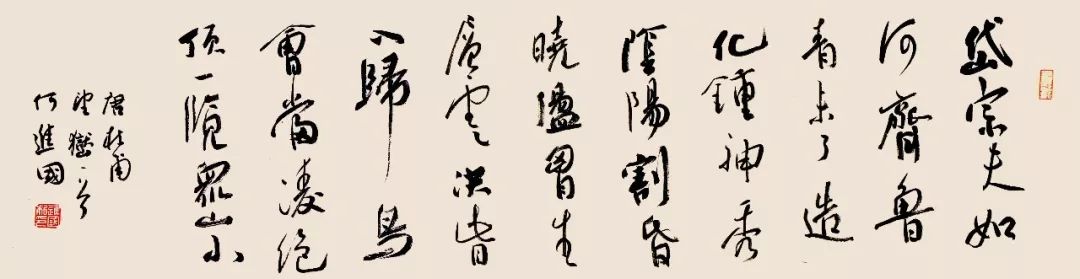 岱宗夫如
何齊魯
青未了造
化鍾神秀
陰陽割昏
曉盪胷生
層雲決眥
入歸鳥
會當凌絕
頂一覽眾山小
唐杜甫
望嶽一首
何進國